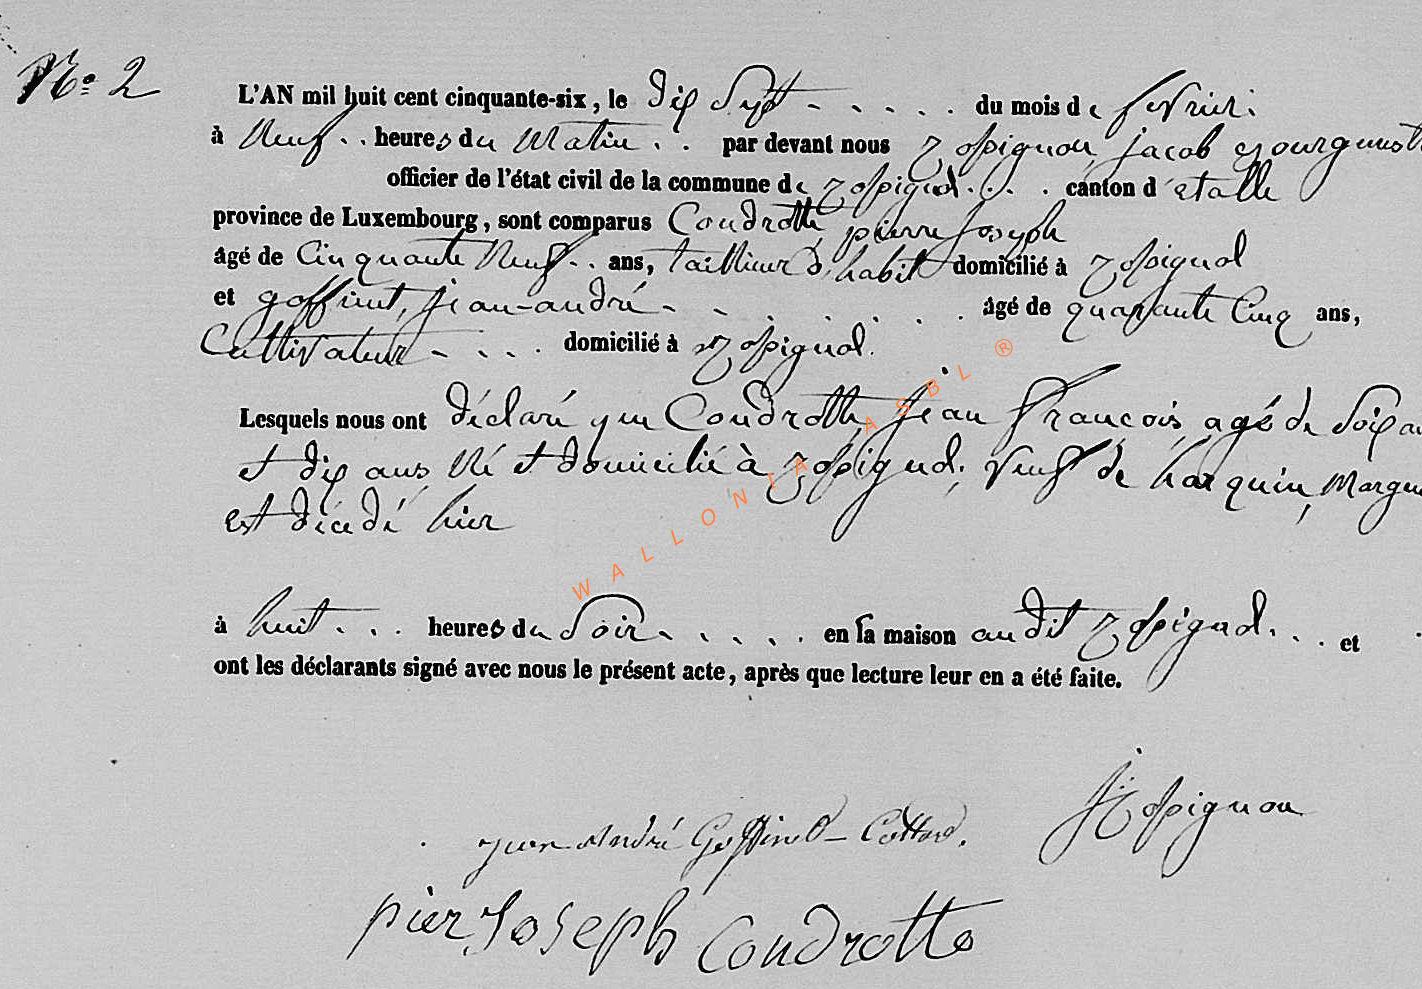 No 2
L'AN mil huit cent cinquante-six, le dix Sept - - - - . du mois de fevrier.
à Neuf . . heures du Matin . . par devant nous jacob
officier de l'état civil de la commune de . . . canton d'etalle
province de Luxembourg, sont comparus Condrotte, pierre Joseph
âgé de Cinquante Neuf . . ans, tailleur d'habit domicilié à
et goffinet, jean-andré - - . . . . . . âgé de quarante Cinq ans,
Cultivateur - . . . domicilié à
Lesquels nous ont déclaré que Condrotte, Jean François, agé de Soix
et dix ans, Né et domicilié à veuf de harquin, Margu
est décédé hier
à huit . . . heures du Soir - . . . . en sa maison audit . . . et
ont les déclarants signé avec nous le présent acte, après que lecture leur en a été faite.
jean andré Goffinet
pier Joseph Condrotte
WALLONIA ASBL ®